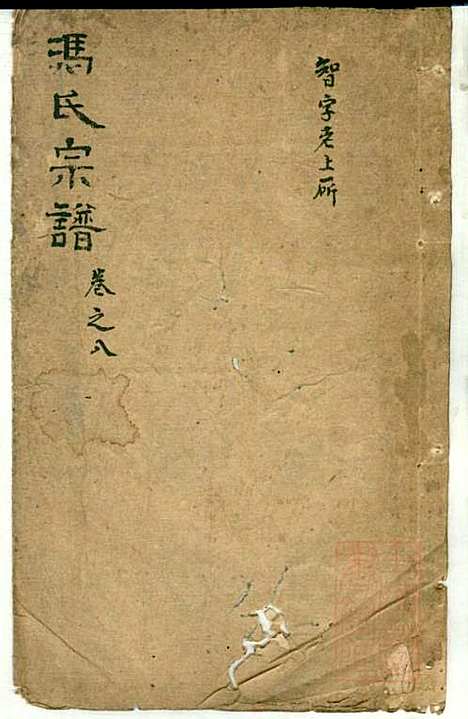 智字老上所
馮氏宗譜
卷之八